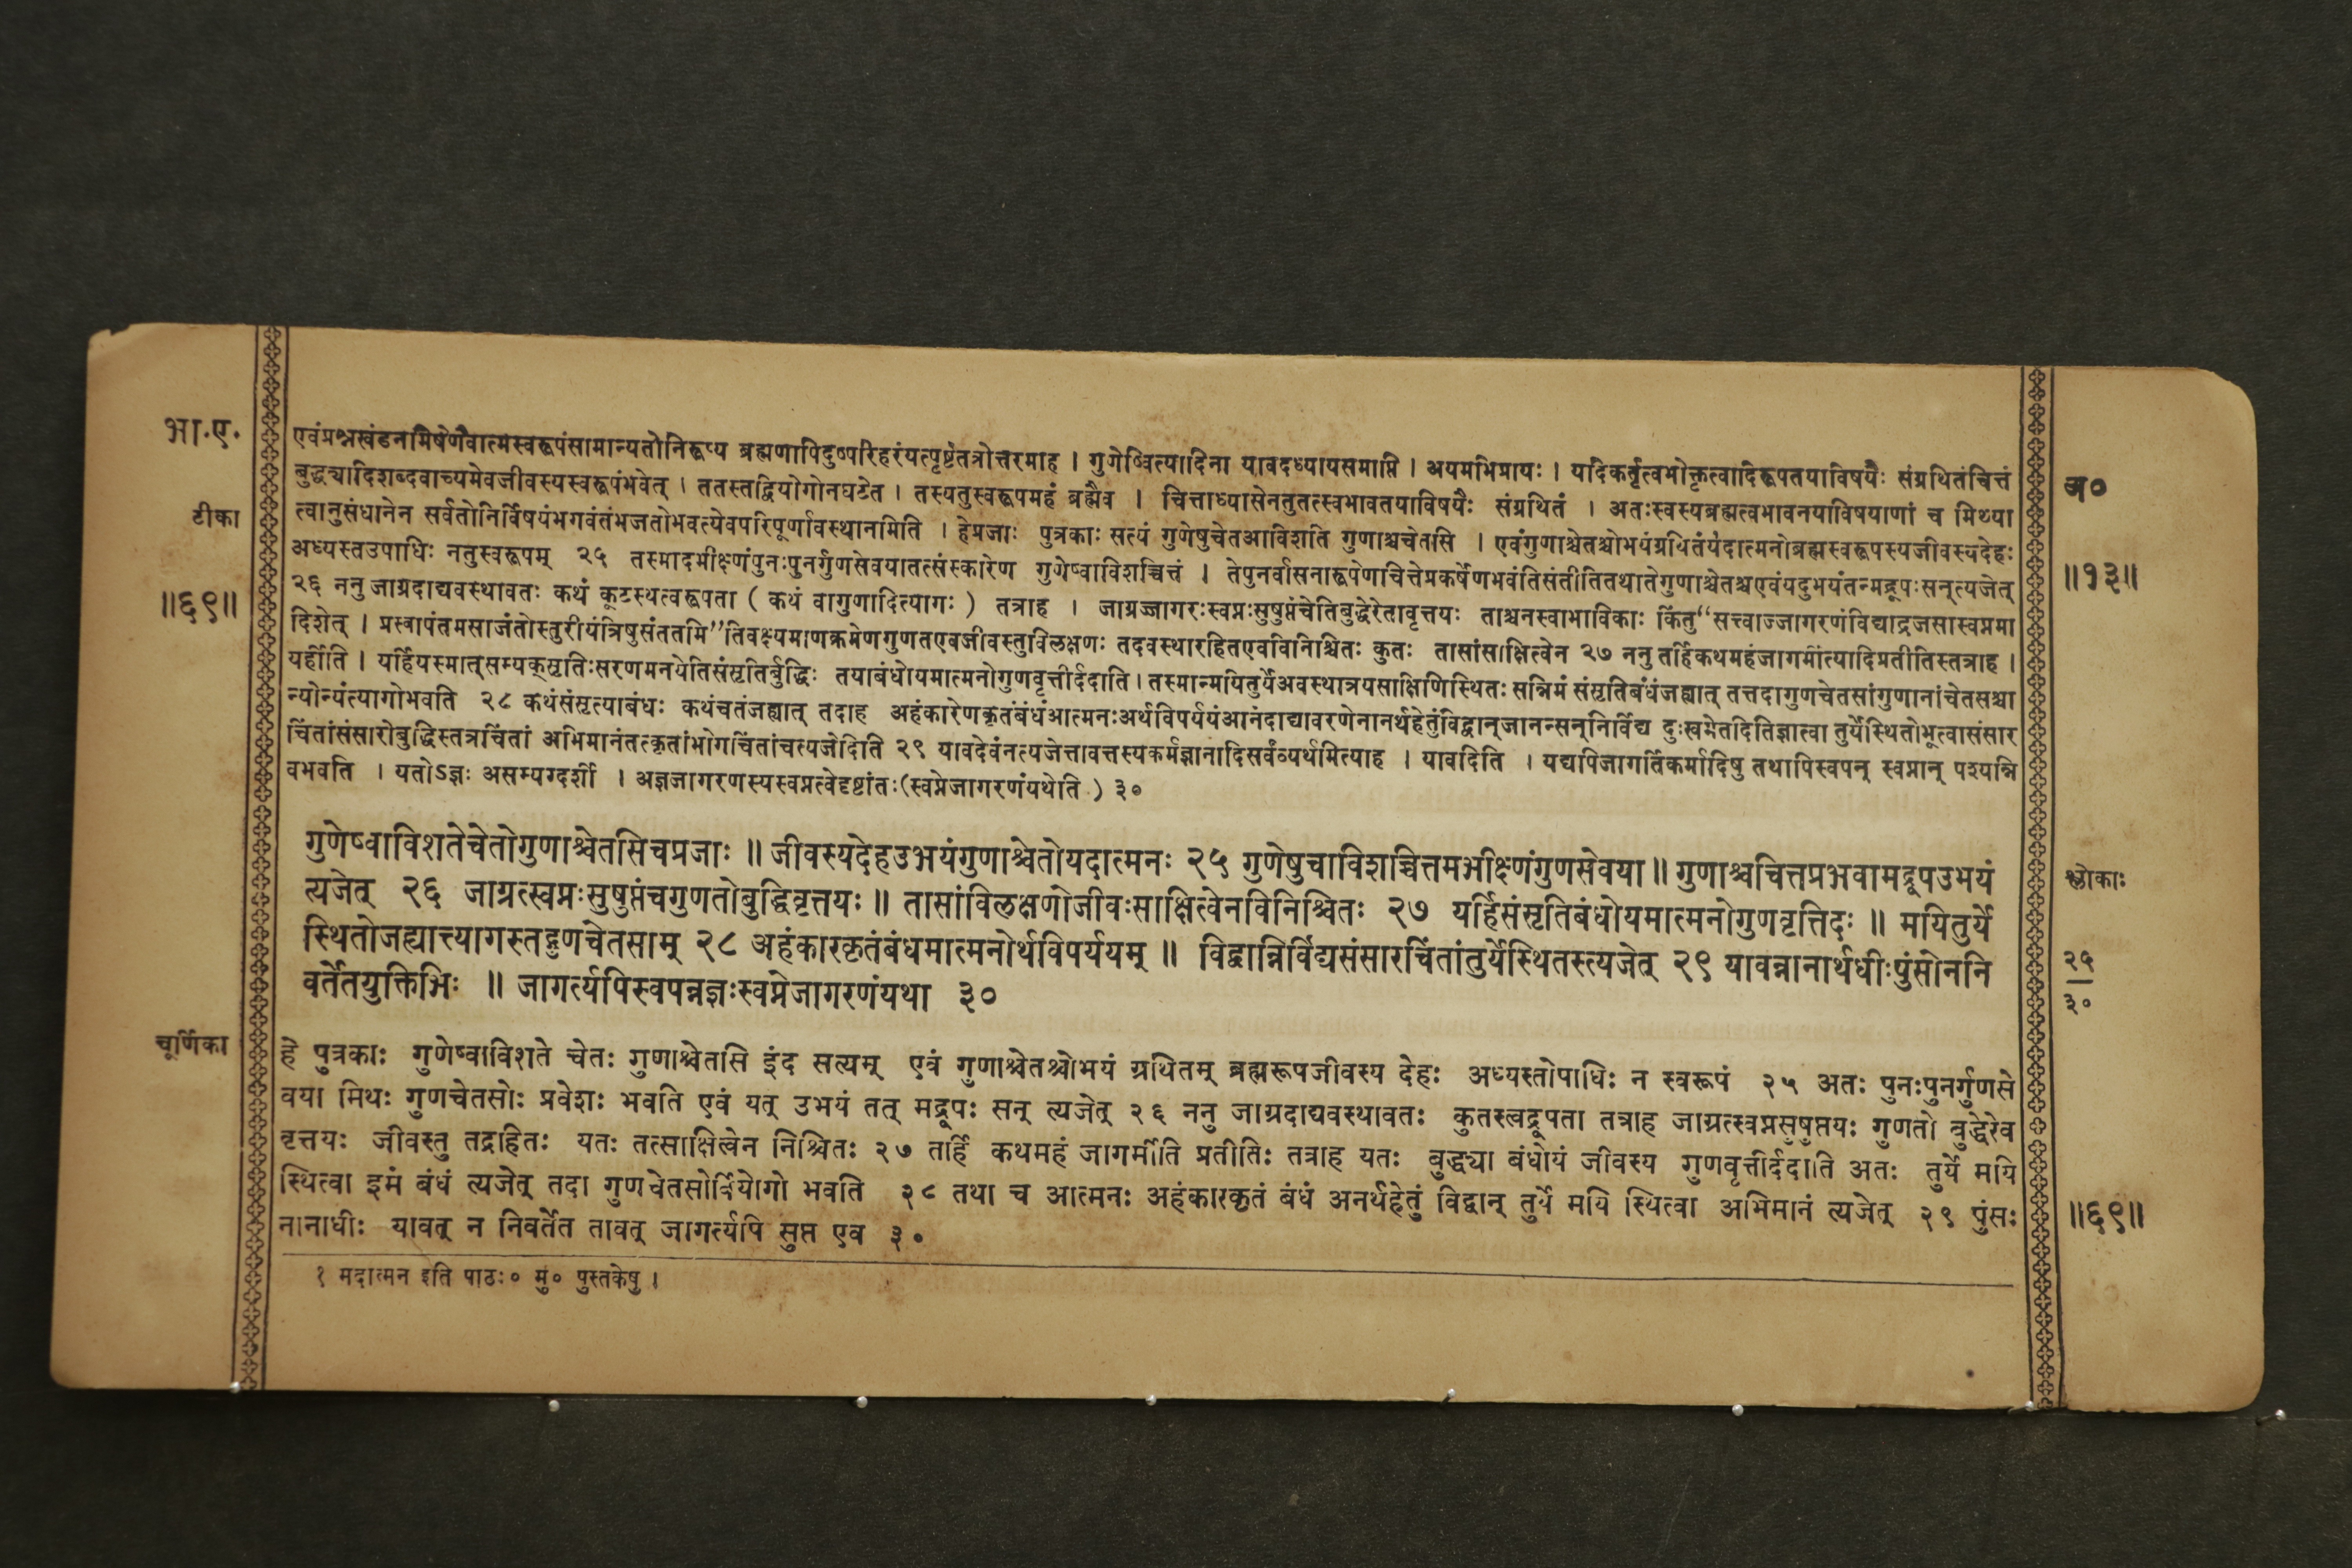 भा.ए.
एवंप्रश्नखंडनमिषेणैवात्मस्वरूपंसामान्यतोनिरूप्य ब्रह्मणापिदुष्परिहरंयत्पृष्टंतत्रोत्तरमाह । गुणेष्वित्यादिना यावदध्यायसमाप्ति । अयमभिप्रायः । यदिकर्तृत्वभोक्तृत्वादिरूपतयाविषयैः संग्रथितंचित्तं
बुद्ध्यादिशब्दवाच्यमेवजीवस्यस्वरूपंभवेत् । ततस्तद्वियोगोनघटेत । तस्यतुस्वरूपमहं ब्रह्मैव । चित्ताध्यासेनतुतत्स्वभावतयाविषयैः संग्रथितं । अतःस्वस्यब्रह्मत्वभावनयाविषयाणां च मिथ्या
अ०
टीका
त्वानुसंधानेन सर्वतोनिर्विषयंभगवंतंभजतोभवत्येवपरिपूर्णावस्थानमिति । हेप्रजाः पुत्रकाः सत्यं गुणेषुचेतआविशति गुणाश्चचेतसि । एवंगुणाश्चेतश्चोभयंग्रथितंयदात्मनोब्रह्मस्वरूपस्यजीवस्यदेहः
अध्यस्तउपाधिः नतुस्वरूपम् २५ तस्मादभीक्ष्णंपुनःपुनर्गुणसेवयातत्संस्कारेण गुणेष्वाविशच्चित्तं । तेपुनर्वासनारूपेणचित्तेप्रकर्षेणभवंतिसंतीतितथातेगुणाश्चेतश्चएवंयदुभयंतन्मद्रूपःसन्त्यजेत्
॥१३॥
॥६९॥
२६ ननु जाग्रदाद्यवस्थावतः कथं कूटस्थत्वरूपता ( कथं वागुणादित्यागः ) तत्राह । जाग्रज्जागरःस्वप्नःसुषुप्तंचेतिबुद्धेरेतावृत्तयः ताश्चनस्वाभाविकाः किंतु“सत्त्वाज्जागरणंविद्याद्रजसास्वप्नमा
दिशेत् । प्रस्वापंतमसाजंतोस्तुरीयंत्रिषुसंततमि”तिवक्ष्यमाणक्रमेणगुणतएवजीवस्तुविलक्षणः तदवस्थारहितएवविनिश्चितः कुतः तासांसाक्षित्वेन २७ ननु तर्हिकथमहंजागर्मीत्यादिप्रतीतिस्तत्राह ।
यर्हीति । यर्हियस्मात्सम्यक्सृतिःसरणमनयेतिसंसृतिर्बुद्धिः तयाबंधोयमात्मनोगुणवृत्तीर्ददाति। तस्मान्मयितुर्येअवस्थात्रयसाक्षिणिस्थितः सन्निमं संसृतिबंधंजह्यात् तत्तदागुणचेतसांगुणानांचेतसश्चा
न्योन्यंत्यागोभवति २८ कथंसंसृत्याबंधः कथंचतंजह्यात् तदाह अहंकारेणकृतंबंधंआत्मनःअर्थविपर्ययंआनंदाद्यावरणेनानर्थहेतुंविद्वान्जानन्सन्निर्विद्य दुःखमेतदितिज्ञात्वा तुर्येस्थितोभूत्वासंसार
चिंतांसंसारोबुद्धिस्तत्रचिंतां अभिमानंतत्कृतांभोगचिंतांचत्यजेदिति २९ यावदेवंनत्यजेत्तावत्तस्यकर्मज्ञानादिसर्वंव्यर्थमित्याह । यावदिति । यद्यपिजागर्तिकर्मादिषु तथापिस्वपन् स्वप्नान् पश्यन्नि
वभवति । यतोऽज्ञः असम्यग्दर्शी । अज्ञजागरणस्यस्वप्नत्वेदृष्टांतः(स्वप्नेजागरणंयथेति ) ३०
गुणेष्वाविशतेचेतोगुणाश्चेतसिचप्रजाः ॥ जीवस्यदेहउभयंगुणाश्चेतोयदात्मनः २५ गुणेषुचाविशच्चित्तमभीक्ष्णंगुणसेवया ॥ गुणाश्चचित्तप्रभवामद्रूपउभयं
श्लोकाः
त्यजेत् २६ जाग्रत्स्वप्नःसुषुप्तंचगुणतोबुद्धिवृत्तयः ॥ तासांविलक्षणोजीवःसाक्षित्वेनविनिश्चितः २७ यर्हिसंसृतिबंधोयमात्मनोगुणवृत्तिदः ॥ मयितुर्ये
स्थितोजह्यात्त्यागस्तद्गुणचेतसाम् २८ अहंकारकृतंबंधमात्मनोर्थविपर्ययम् ॥ विद्वान्निर्विद्यसंसारचिंतांतुर्येस्थितस्त्यजेत् २९ यावन्नानार्थधीःपुंसोननि
२५
वर्तेतयुक्तिभिः ॥ जागर्त्यपिस्वपन्नज्ञःस्वप्नेजागरणंयथा ३०
३०
चूर्णिका
हे पुत्रकाः गुणेष्वाविशते चेतः गुणाश्चेतसि इंद सत्यम् एवं गुणाश्चेतश्चोभयं ग्रथितम् ब्रह्मरूपजीवस्य देहः अध्यस्तोपाधिः न स्वरूपं २५ अतः पुनःपुनर्गुणसे
वया मिथः गुणचेतसोः प्रवेशः भवति एवं यत् उभयं तत् मद्रूपः सन् त्यजेत् २६ ननु जाग्रदाद्यवस्थावतः कुतस्त्वद्रूपता तत्राह जाग्रत्स्वप्नसुषुप्तयः गुणतो बुद्धेरेव
वृत्तयः जीवस्तु तद्रहितः यतः तत्साक्षित्वेन निश्चितः २७ तर्हि कथमहं जागर्मीति प्रतीतिः तत्राह यतः बुद्ध्या बंधोयं जीवस्य गुणवृत्तीर्ददाति अतः तुर्ये मयि
स्थित्वा इमं बंधं त्यजेत् तदा गुणचेतसोर्वियोगो भवति २८ तथा च आत्मनः अहंकारकृतं बंधं अनर्थहेतुं विद्वान् तुर्ये मयि स्थित्वा अभिमानं त्यजेत् २९ पुंसः
॥६९॥
नानाधीः यावत् न निवर्तेत तावत् जागर्त्यपि सुप्त एव ३०
१ मदात्मन इति पाठः० मुं० पुस्तकेषु ।